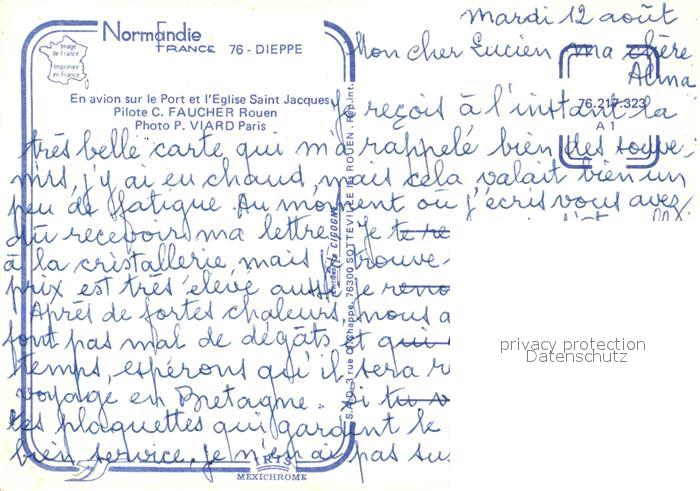 Mardi 12 août
Normandie
FRANCE 76 - DIEPPE
Image de France
Imprimée en France
Mon cher Lucien ma chère
Alma
76.217.323
A 1
En avion sur le Port et l'Eglise Saint Jacques
Pilote C. FAUCHER Rouen
Photo P. VIARD Paris
Je reçois à l'instant la
très belle carte qui m'a rappelé bien des souve-
nirs, j'y ai eu chaud, mais cela valait bien un
peu de fatigue. Au moment où j'écris vous avez
dû recevoir ma lettre. Je
à la cristallerie, mais trouve
prix est très élevé aussi je
Après de fortes chaleurs, nous a
font pas mal de dégâts et qui
temps, espérons qu'il sera
voyage en Bretagne. Si tu v
tes plaquettes qui gardent le
bien service, je n'en ai pas su
CIGOGNE
S.P.A.D. 3 rue 76300 SOTTEVILLE-LES-ROUEN. Rep. int.
MEXICHROME
privacy protection
Datenschutz